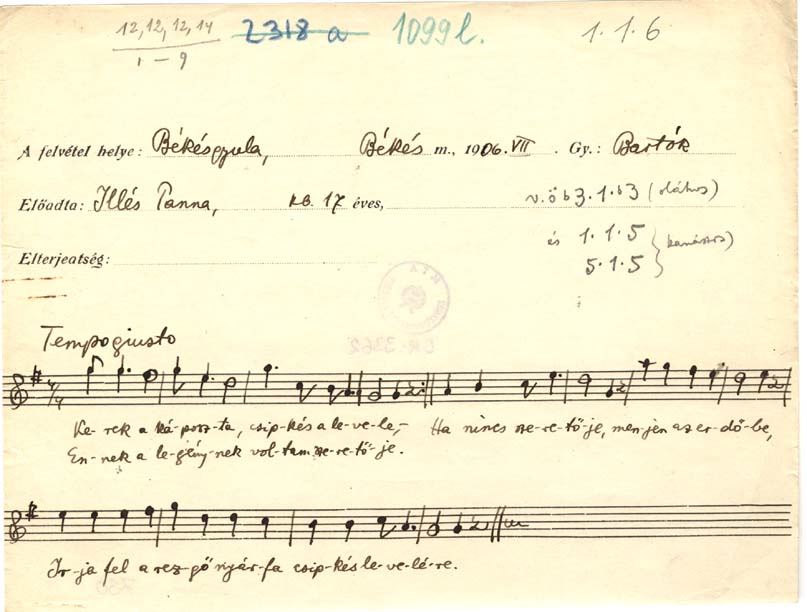 12, 12, 12, 14 2318 a 1099 l. 1. 1. 6
1 – 9
A felvétel helye: Békésgyula, Békés m., 1906. VII. Gy.: Bartók
Előadta: Illés Panna, kb. 17 éves, v.ö b 3.1.b3 (oláhos)
Elterjeatség: és 1.1.5 } kanászos)
5.1.5
Tempo giusto
4/4
Ke-rek a ká-posz-ta, csip-kés a le-ve-le,- Ha nincs sze-re-tő-je, men-jen az er-dő-be,
En-nek a le-gény-nek vol-tam sze-re-tő-je.
Ir-ja fel a rez-gő nyár-fa csip-kés le-ve-lé-re.